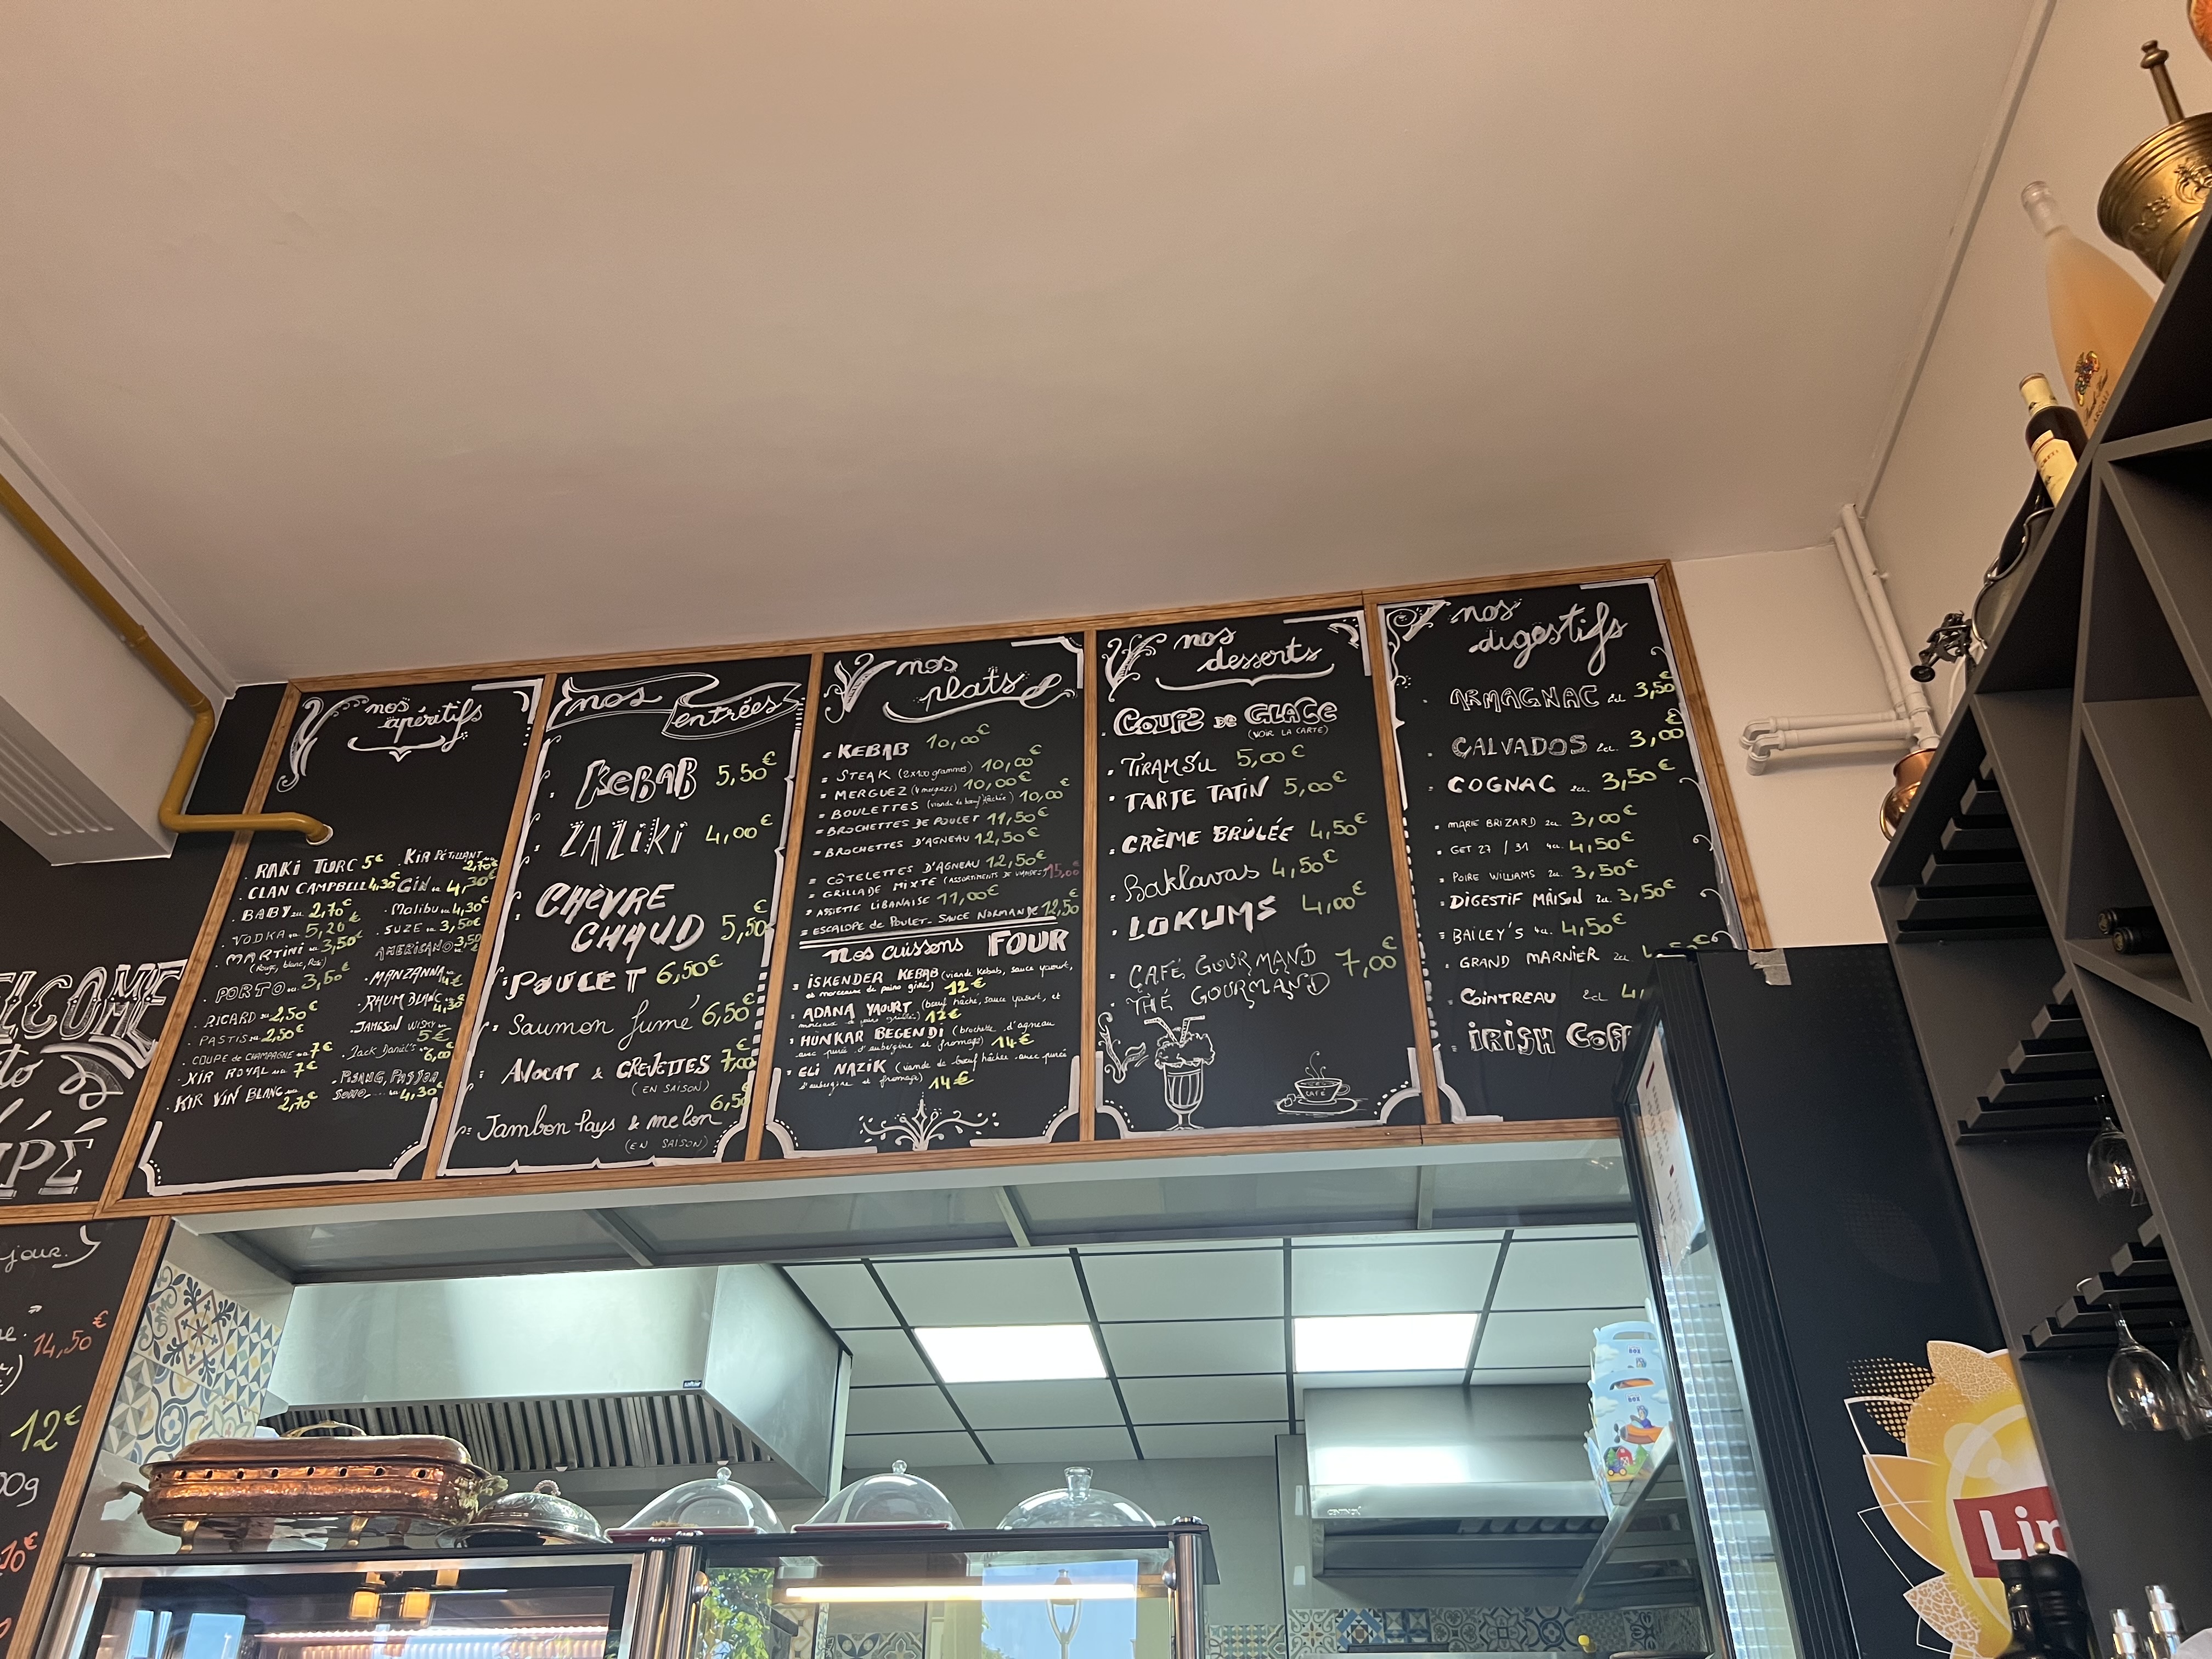 nos
apéritifs
. RAKI TURC 5€
. CLAN CAMPBELL 4,30€
. BABY 2cl 2,70€
. VODKA 5,20€
. MARTINI 3,50€
(Rouge, blanc, Rosé)
. PORTO 3,50€
. RICARD 2,50€
. PASTIS 2,50€
. COUPE de CHAMPAGNE 7€
. KIR ROYAL 7€
. KIR VIN BLANC
2,70€
. KIR PÉTILLANT
2,70€
. GIN 4,30€
. Malibu 4,30€
. SUZE 3,50€
AMERICANO 3,50
. MANZANNA
4€
. RHUM BLANC 4,30€
. JAMESON
5€
. Jack Daniel's
6,00€
. PISANG, PASSOA
SOHO 4,30€
nos
entrées
. KEBAB 5,50€
. ZAZIKI 4,00€
. CHÈVRE
CHAUD 5,50€
. POULET 6,50€
. Saumon fumé 6,50€
. AVOCAT & CREVETTES 7,00€
(EN SAISON)
. Jambon Pays & melon 6,50€
(EN SAISON)
nos
plats
= KEBAB 10,00€
= STEAK (2x100 grammes) 10,00€
= MERGUEZ (4 merguez) 10,00€
= BOULETTES (viande de bœuf hâchée) 10,00€
= BROCHETTES DE POULET 11,50€
= BROCHETTES D'AGNEAU 12,50€
= CÔTELETTES D'AGNEAU 12,50€
= GRILLADE MIXTE (ASSORTIMENTS DE VIANDE) 15,00
= ASSIETTE LIBANAISE 11,00€
= ESCALOPE de POULET - SAUCE NORMANDE 12,50
Nos cuissons FOUR
= İSKENDER KEBAB (viande kebab, sauce yaourt,
et morceaux de pains grillés) 12€
= ADANA YAOURT (bœuf hâché, sauce yaourt, et
morceaux de pains grillés) 12€
= HUNKAR BEGENDİ (brochette d'agneau
avec purée d'aubergine et fromage) 14€
= ELİ NAZİK (viande de bœuf hâchée avec purée
d'aubergine et fromage) 14€
nos
desserts
. COUPE DE GLACE
(VOIR LA CARTE)
. TIRAMSU 5,00€
. TARTE TATIN 5,00€
. CRÈME BRÛLÉE 4,50€
. Baklavas 4,50€
. LOKUMS 4,00€
. CAFÉ GOURMAND 7,00€
. THÉ GOURMAND
CAFÉ
nos
digestifs
. ARMAGNAC 2cl 3,50€
. CALVADOS 2cl 3,00€
. COGNAC 2cl 3,50€
. MARIE BRIZARD 2cl 3,00€
. GET 27 / 31 4cl 4,50€
. POIRE WILLIAMS 2cl 3,50€
. DIGESTIF MAISON 2cl 3,50€
. BAILEY'S 4cl 4,50€
. GRAND MARNIER 2cl
. COINTREAU 2cl
. IRISH COFF
ELCOME
to
jour.
14,50€
12€
00g
10€
BOX
Lip